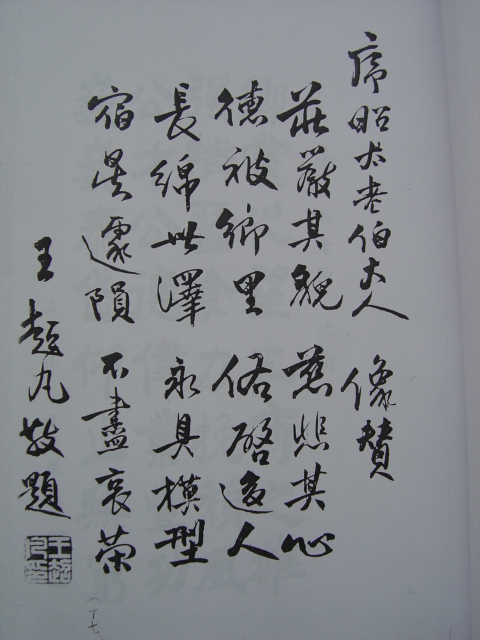 序昭太老伯大人 像贊
莊嚴其貌 慈悲其心
德被鄉里 佑啓後人
長綿世澤 永具模型
宿星遽隕 不盡哀榮
王超凡敬題
王超凡印